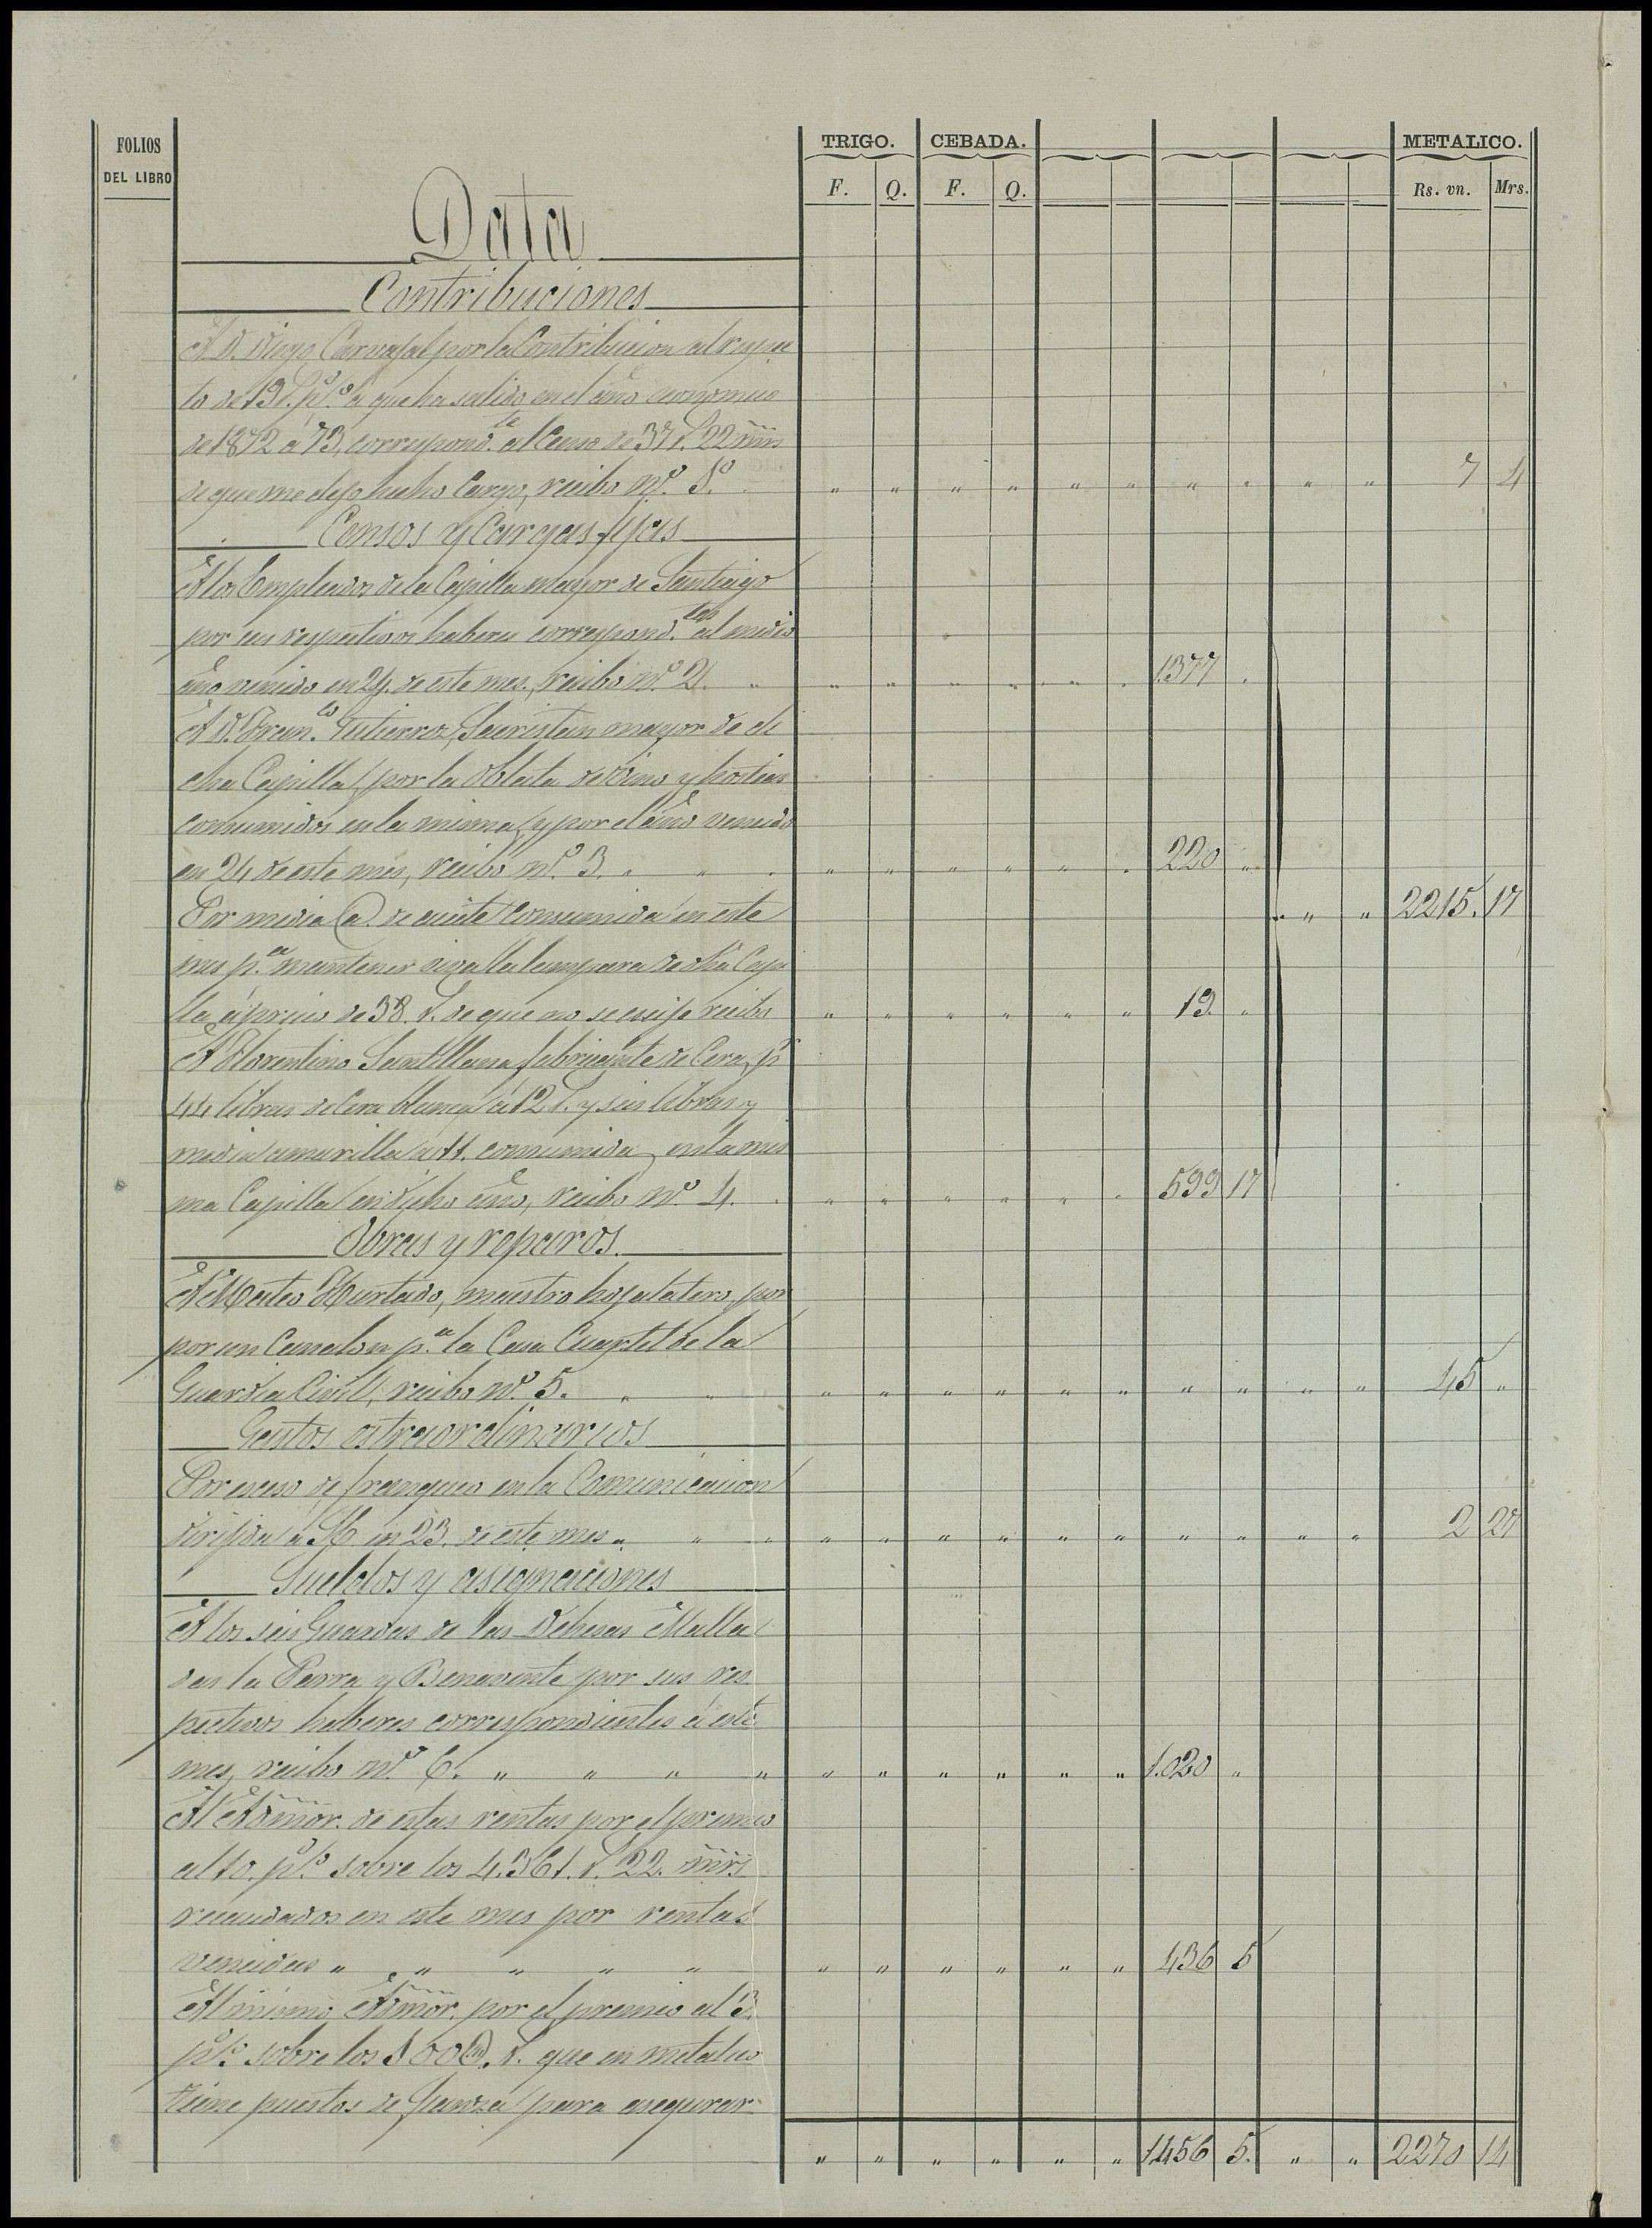 FOLIOS
DEL LIBRO
TRIGO. CEBADA. METALICO.
F. Q. F. Q. Rs. vn. Mrs.
Data
Contribuciones
A D. Diego Carvajal por la Contribucion al respec
to de 19 r. p%. a que ha salido en el año economico
de 1872 á 73, correspond.te al Censo de 37 r. 22 mrs
de que me dejo hecho Cargo, recibo n.º 1.º " " " " " " " " " " 7 4
Censos y Cargas fijas
A los Empleados de la Capilla mayor de Santiago
por sus respectivos haberes correspond.tes al medio
año vencido en 24 de este mes, recibo n.º 2. " " " " " " " 1377 "
A D. Fran.co Gutierrez, Sacristan mayor de di
cha Capilla, por la oblata de vino y hostias
consumidos en la misma, y por el año vencido
en 24 de este mes, recibo n.º 3. " " " " " " " " 220 "
Por media @. de aceite consumida en este " " 2215. 17
mes p.a mantener viva la lampara de dha Capi
lla á precio de 38. r. de que no se exije recibo " " " " " " 19. "
A Florentino Santillana, fabricante de Cera, p.r
44 libras de Cera blanca á 12 r. y seis libras y
media amarilla á 11. consumida en la mis
ma Capilla en dicho año, recibo n.º 4. " " " " " " " 599 17
Obras y reparos.
A Mateo Hurtado, maestro hojalatero, por
por un Canalon p.a la Casa Cuartel de la
Guardia Civil, recibo n.º 5. " " " " " " " " " " " " 45 "
Gastos estraordinarios
Por esceso de franqueo en la Comunicacion
dirijida á M. en 23. de este mes " " " " " " " " " " " " " 2 27
Sueldos y asignaciones
A los seis Guardas de las Dehesas Malla
das la Parra y Benavente por sus res
pectivos haberes correspondientes á este
mes, recibo n.º 6. " " " " " " " " " " 1.020 "
Al Admor. de estas rentas por el premio
al 10. p% sobre los 4.361. r. 22. mrs
recaudados en este mes por rentas
vencidas " " " " " " " " " " " 436 5
Al mismo Admor. por el premio al 3.
p% sobre los 100@. r. que en metalico
tiene puestos de fianza para asegurar
" " " " " " 1456 5. " " 2270 14